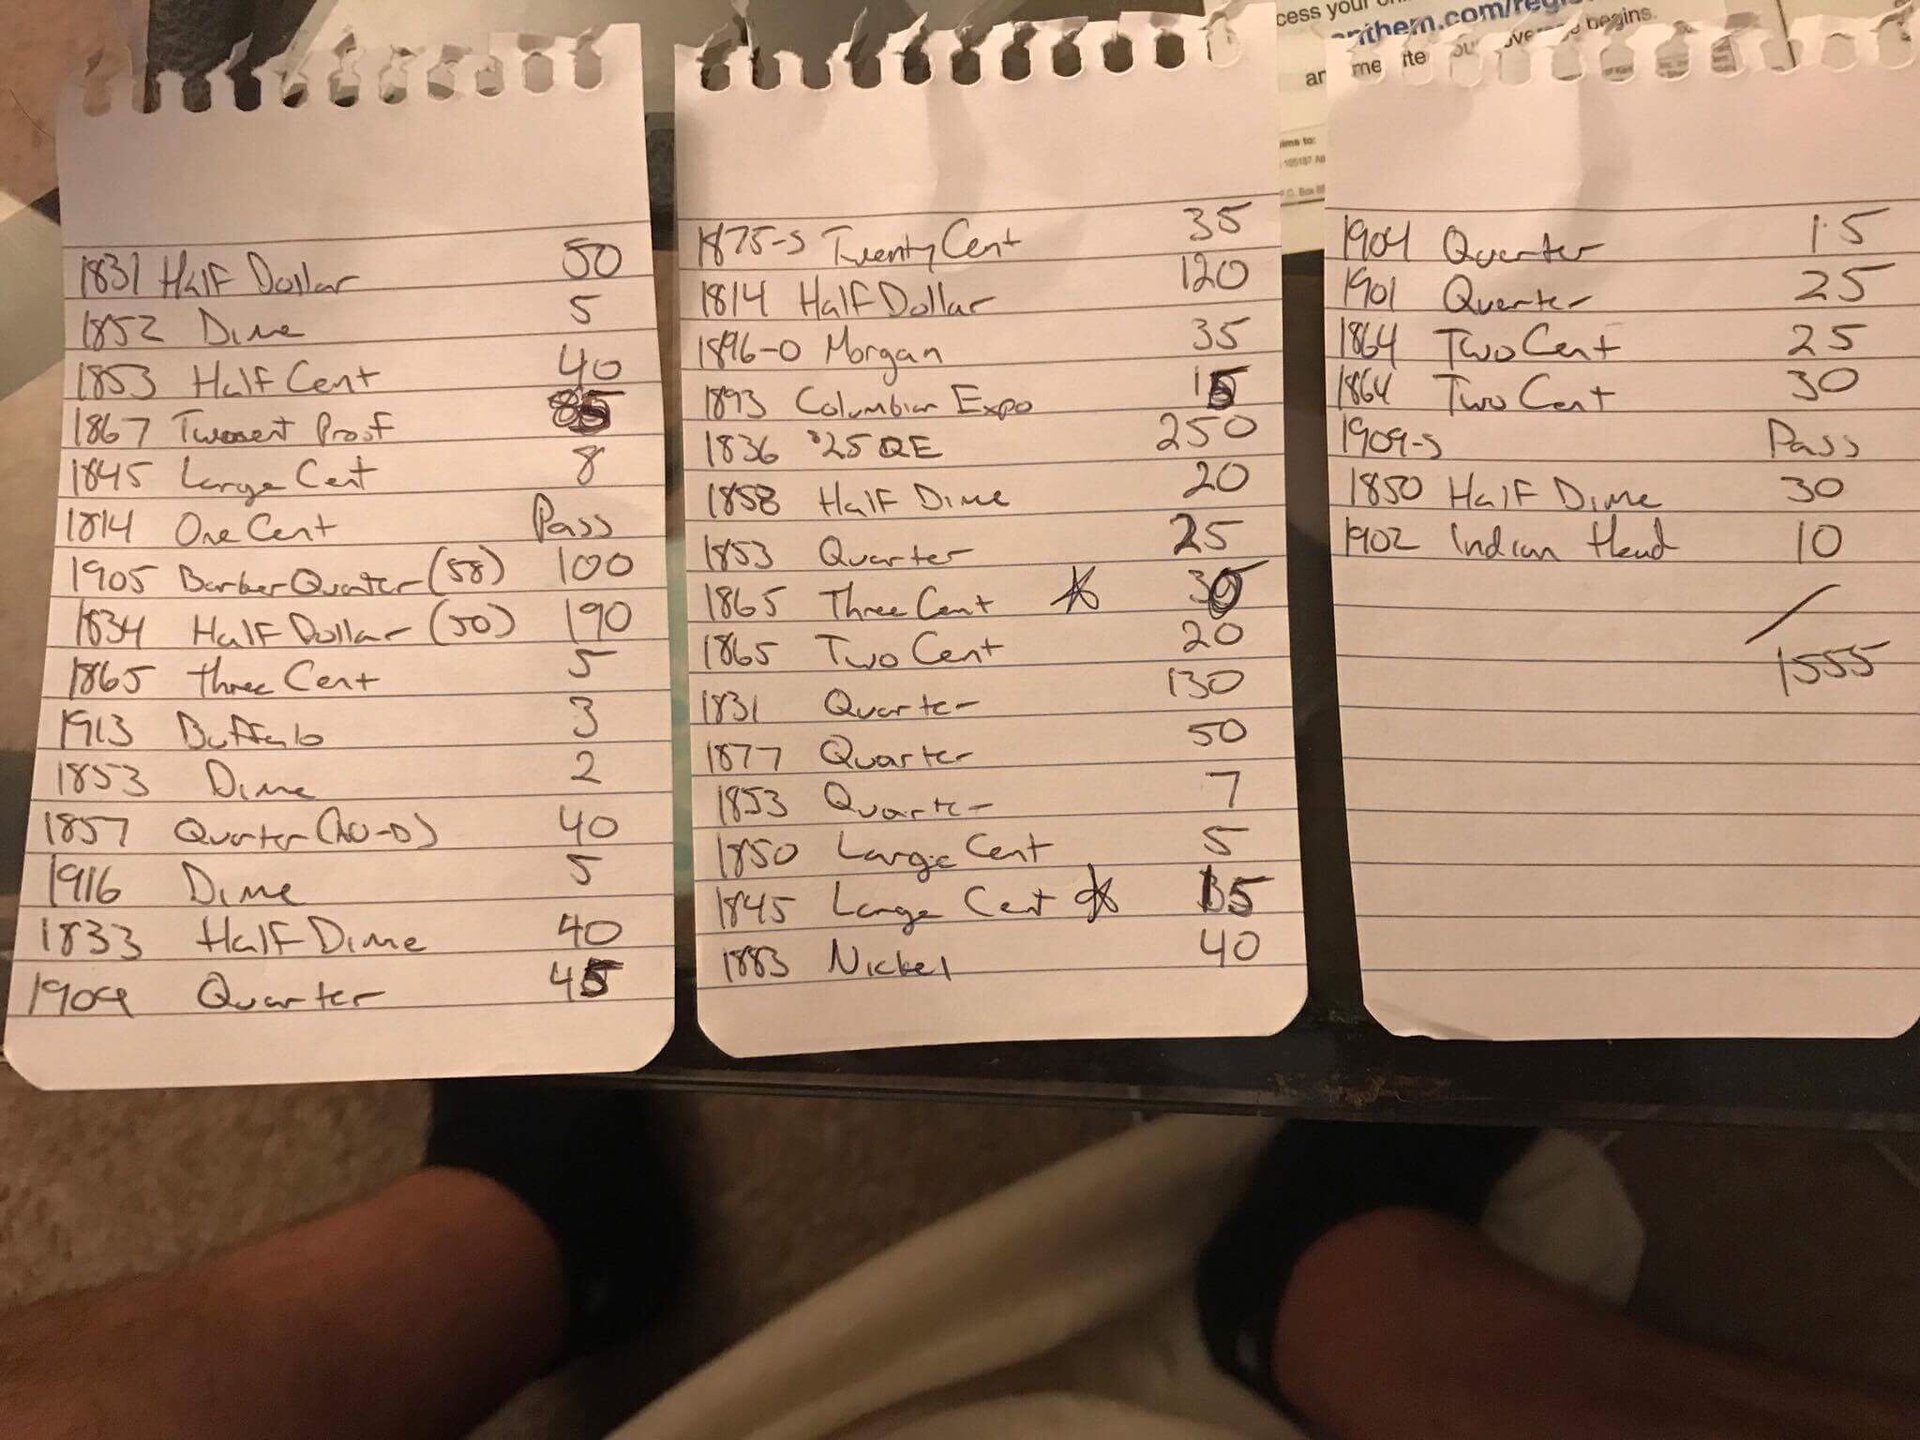 1831 Half Dollar 50
1852 Dime 5
1853 Half Cent 40
1867 Twocent Proof 85
1845 Large Cent 8
1814 One Cent Pass
1905 Barber Quarter (58) 100
1834 Half Dollar (50) 190
1865 Three Cent 5
1913 Buffalo 3
1853 Dime 2
1857 Quarter (AU-D) 40
1916 Dime 5
1833 Half Dime 40
1909 Quarter 45
1875-S Twenty Cent 35
1814 Half Dollar 120
1896-O Morgan 35
1893 Columbian Expo 15
1836 $25 QE 250
1858 Half Dime 20
1853 Quarter 25
1865 Three Cent ☆ 30
1865 Two Cent 20
1831 Quarter 130
1877 Quarter 50
1853 Quarter 7
1850 Large Cent 5
1845 Large Cent ☆ 15
1883 Nickel 40
cess your
anthem.com/regi
begins.
ims to:
1904 Quarter 15
1901 Quarter 25
1864 Two Cent 25
1864 Two Cent 30
1909-S Pass
1850 Half Dime 30
1902 Indian Head 10
1555